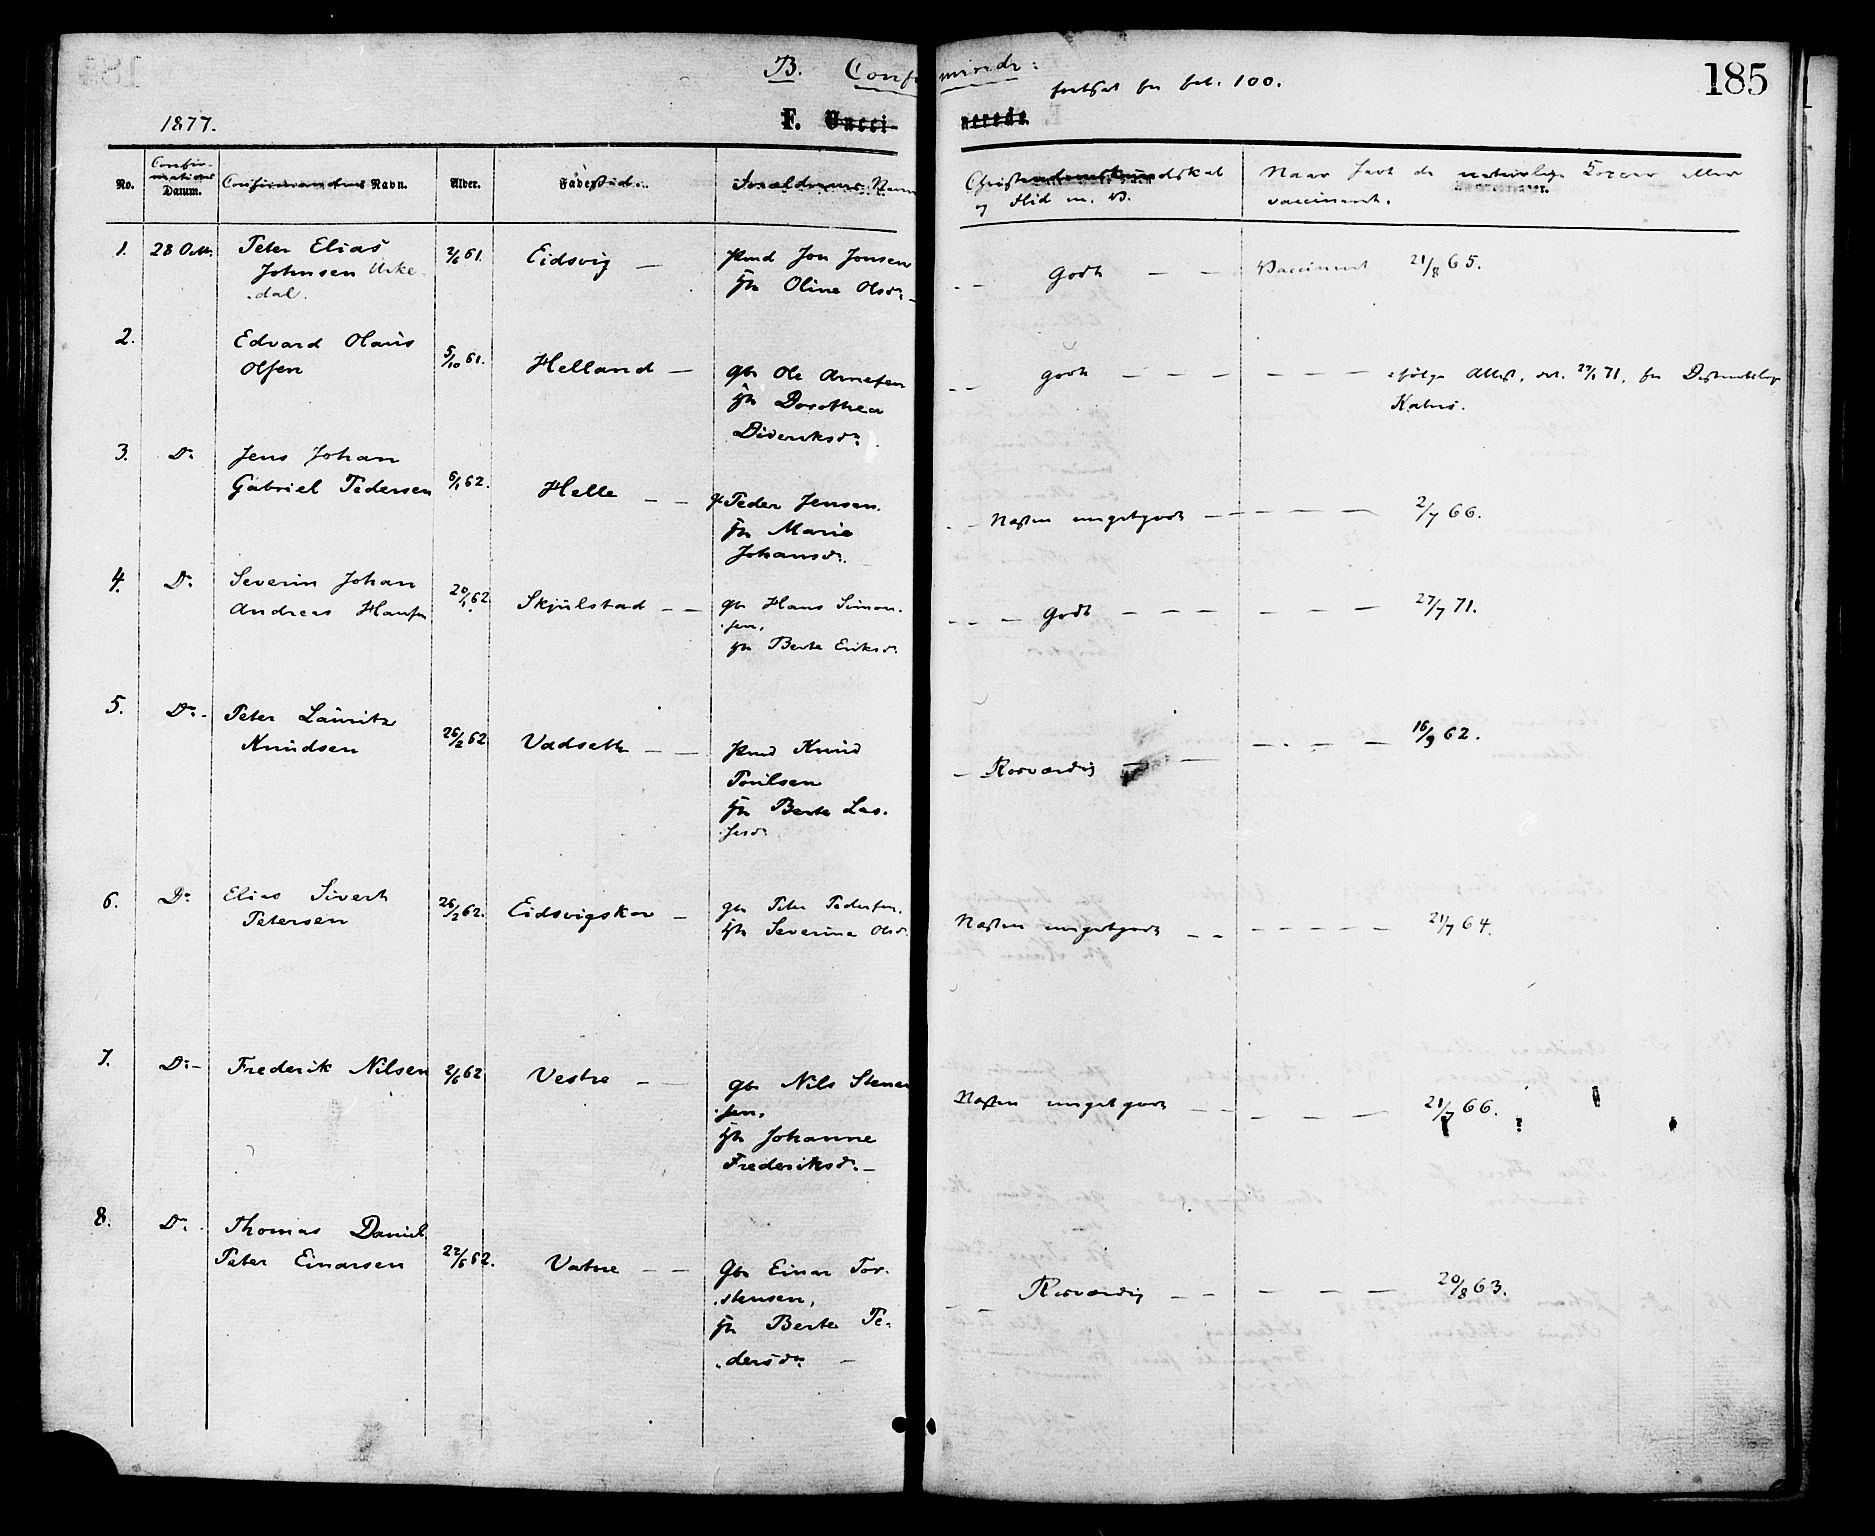 B. Confirmirede:
fortsat fra fol. 100.
185
1877.
F. Vacci-
nerede
No.
Confir-
mations
Datum.
Confirmandens Navn.
Alder.
Fødested.
Forældrenes Navn
Christendomskundskab
og Flid m. V.
Naar havt de naturlige Kopper eller
vaccineret.
1. 28 Oktr. Peter Elias 2/6 61. Eidsvig — Pmd Jon Jonsen
Johnsen Urke-
dal.
Oline Olsdr. —
Godt — — Vaccineret 21/8 65.
2. Edvard Olaus
Olsen 5/10 61. Helland — gbr Ole Arnesen
Dorothea
Dideriksdr.
godt — — — — ifølge Attest, 71, fra
Kahrs.
3. Do Jens Johan
Gabriel Pedersen 6/1 62. Helle — — Peder Jensen.
Maria
Johansdr.
Næsten megetgodt — — — — 2/7 66.
4. Do Severin Johan
Andreas Hansen 20/1 62. Skjulstad — — gbr Hans Simon-
sen,
Berte Eriksdr.
Godt — — — — 27/7 71.
5. Do Peter Lauritz
Knudsen 26/2 62 Vadseth — — Pmd Knud
Poulsen
Berte Las-
sesdr.
Rosværdig — — — — 16/9 62.
6. Do Elias Sivert
Petersen 26/2 62. Eidsvigskar — gbr Peter Pedersen,
Severine Olsdr.
Næsten megetgodt — — — — 21/7 64.
7. Do Frederik Nilsen 2/6 62 Vestre — — gbr Nils Stener
sen,
Johanne
Frederiksdr. —
Næsten megetgodt — — — — 21/7 66.
8. Do Thomas Daniel
Peter Einarsen 22/6 62. Vatne — — Gbr Einar Tor-
stensen,
Berte Pe-
dersdr. —
Rosværdig — — — — 20/8 63.